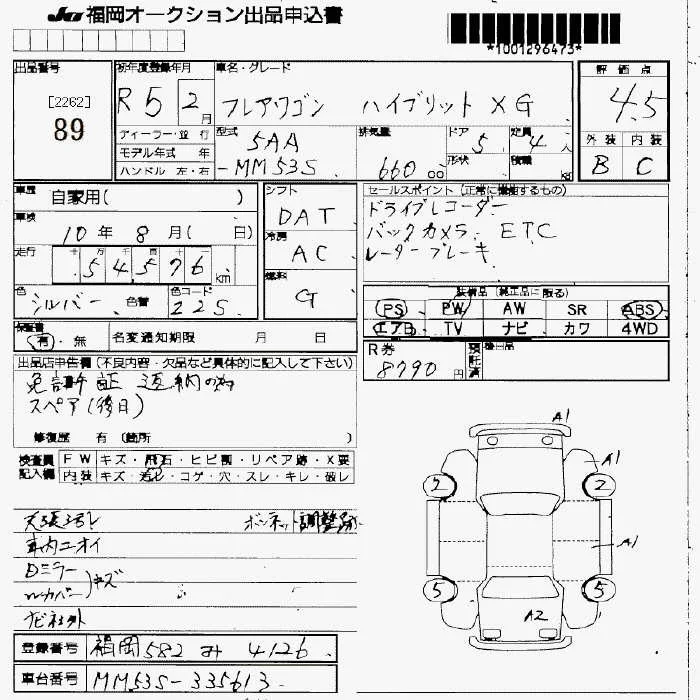 JU 福岡オークション出品申込書
*1001296473*
出品番号
[2262]
89
初年度登録年月
R5 2月
車名・グレード
フレアワゴン ハイブリット XG
評価点
4.5
外装 内装
B C
ディーラー・並行
モデル年式 年
ハンドル 左・右
型式
5AA
-MM53S
排気量
660 cc
ドア
5
形状
定員
4人
積載
kg
車歴
自家用( )
車検
10年 8月( 日)
走行
十 万 千 百 十
54576 km
色
シルバー 色替
色コード
Z2S
シフト
DAT
冷房
AC
燃料
G
セールスポイント (正常に機能するもの)
ドライブレコーダー
バックカメラ. ETC
レーダーブレーキ
装備品 (純正品に限る)
PS PW AW SR ABS
エアB TV ナビ カワ 4WD
保証書
有・無
名変通知期限 月 日
R券
8790円
預託済
後日品
出品店申告欄 (不良内容・欠品など具体的に記入して下さい)
免許証 返納の為
スペア(後日)
修復歴 有 (箇所 )
検査員記入欄
FW キズ・飛石・ヒビ割・リペア跡・X要
内装 キズ・汚レ・コゲ・穴・スレ・キレ・破レ
天張汚レ ボンネット調整跡
車内ニオイ
Dミラー
カバー キズ
ナビ社外
A1
A1
2 2
A1
5 5
A2
登録番号 福岡582 み 4126
車台番号 MM53S-335613